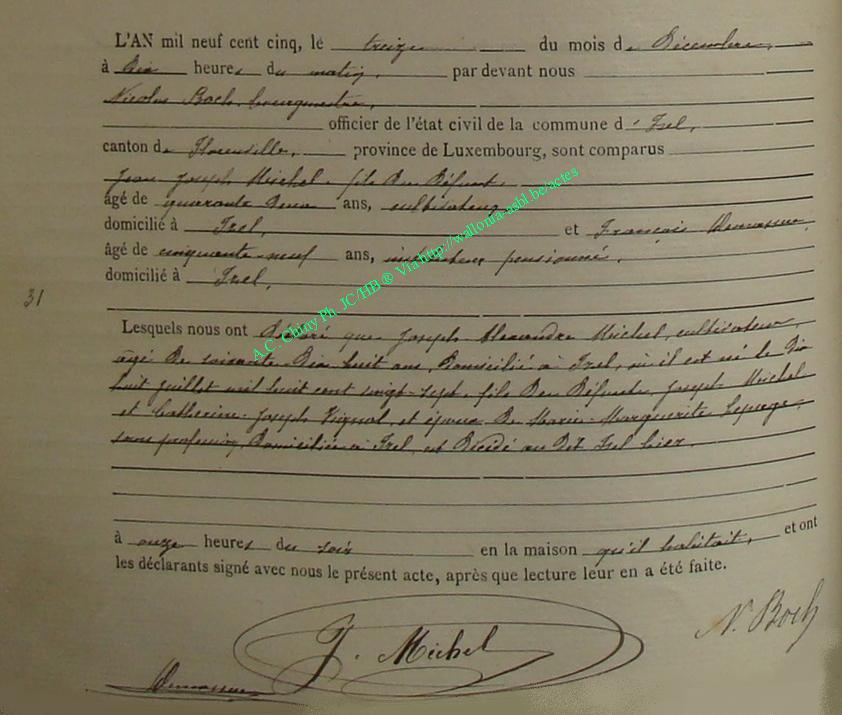 L'AN mil neuf cent cinq, le treize du mois de Décembre,
à dix heures du matin, par devant nous
Nicolas Boch, bourgmestre,
officier de l'état civil de la commune d'Izel,
canton de Florenville, province de Luxembourg, sont comparus
Jean Joseph Michel, fils du Défunt,
âgé de quarante deux ans, cultivateur
domicilié à Izel, et François
âgé de cinquante-neuf ans, instituteur pensionné,
domicilié à Izel,
31
Lesquels nous ont déclaré que Joseph Alexandre Michel, cultivateur,
âgé de soixante dix huit ans, domicilié à Izel, où il est né le dix
huit juillet mil huit cent vingt-sept, fils des défunts Joseph Michel
et Catherine Joseph Pignot, et époux de Marie-Marguerite Lepage,
sans profession, domiciliée à Izel, est décédé au dit Izel hier
à onze heures du soir en la maison qu'il habitait, et ont
les déclarants signé avec nous le présent acte, après que lecture leur en a été faite.
N. Boch
J. Michel
A.C. Chiny Ph. JC/HB ® Via http://wallonia-asbl.be/actes